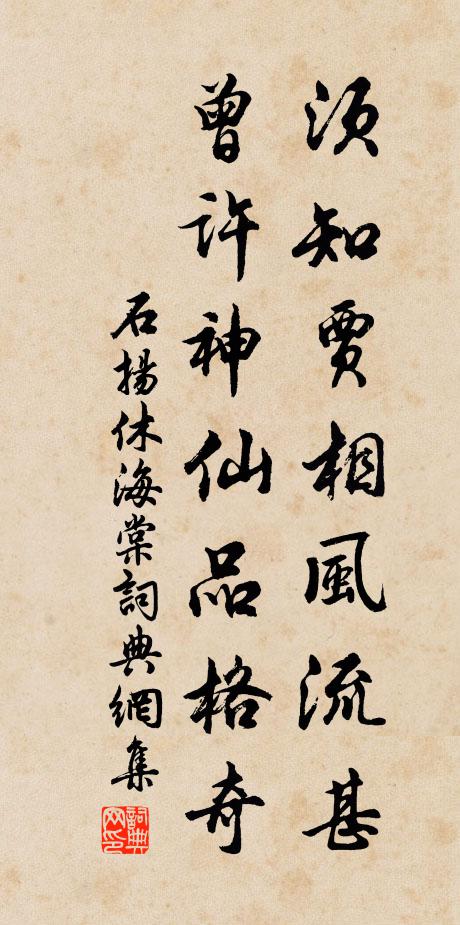 須知賈相風流甚
曾許神仙品格奇
石揚休海棠詞典網集
詞典網印